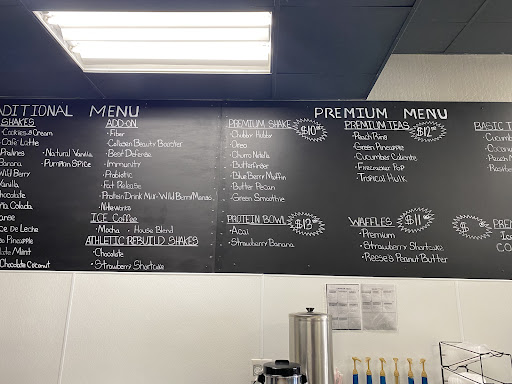 ADITIONAL MENU
SHAKES
Cookies & Cream
Cafe Latte
Pralines
Banana
Wild Berry
Vanilla
Chocolate
Piña Colada
Dulce De Leche
Pineapple
Mint
Chocolate Coconut
• Natural Vanilla
• Pumpkin Spice
ADD-ON
• Fiber
• Collagen Beauty Booster
• Best Defense
• Immunity
• Probiotic
• Fat Release
• Protein Drink Mix-Wild Berry/Mango
• Niteworks
ICE COFFEE
• Mocha • House Blend
ATHLETIC/REBUILD SHAKES
• Chocolate
• Strawberry Shortcake
PREMIUM MENU
PREMIUM SHAKE $10
• Chubby Hubby
• Oreo
• Churro Nutella
• Butterfinger
• Blue Berry Muffin
• Butter Pecan
• Green Smoothie
PROTEIN BOWL $13
• Acai
• Strawberry Banana
PREMIUM TEAS $12
• Peach Ring
• Green Pineapple
• Cucumber Caliente
• Firecracker Pop
• Tropical Hulk
WAFFLES $11
• Premium
• Strawberry Shortcake
• Reese's Peanut Butter
BASIC T
• Cucumb
• Coconut
• Peach M
• Raspber
$
PREM
Ice
CO